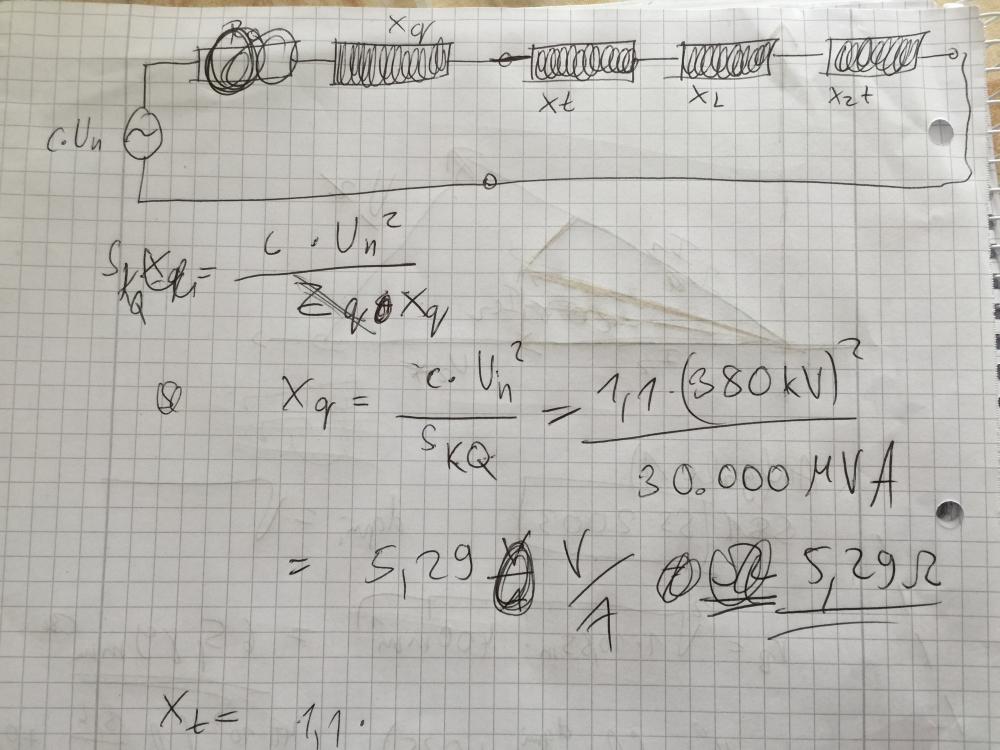 Xq
Xt XL X2t
c.Un
SKQ = c · Un² / Xq
Xq = c · Un² / SKQ = 1,1 · (380 kV)² / 30.000 MVA
= 5,29 V/A 5,29 Ω
Xt = 1,1 ·